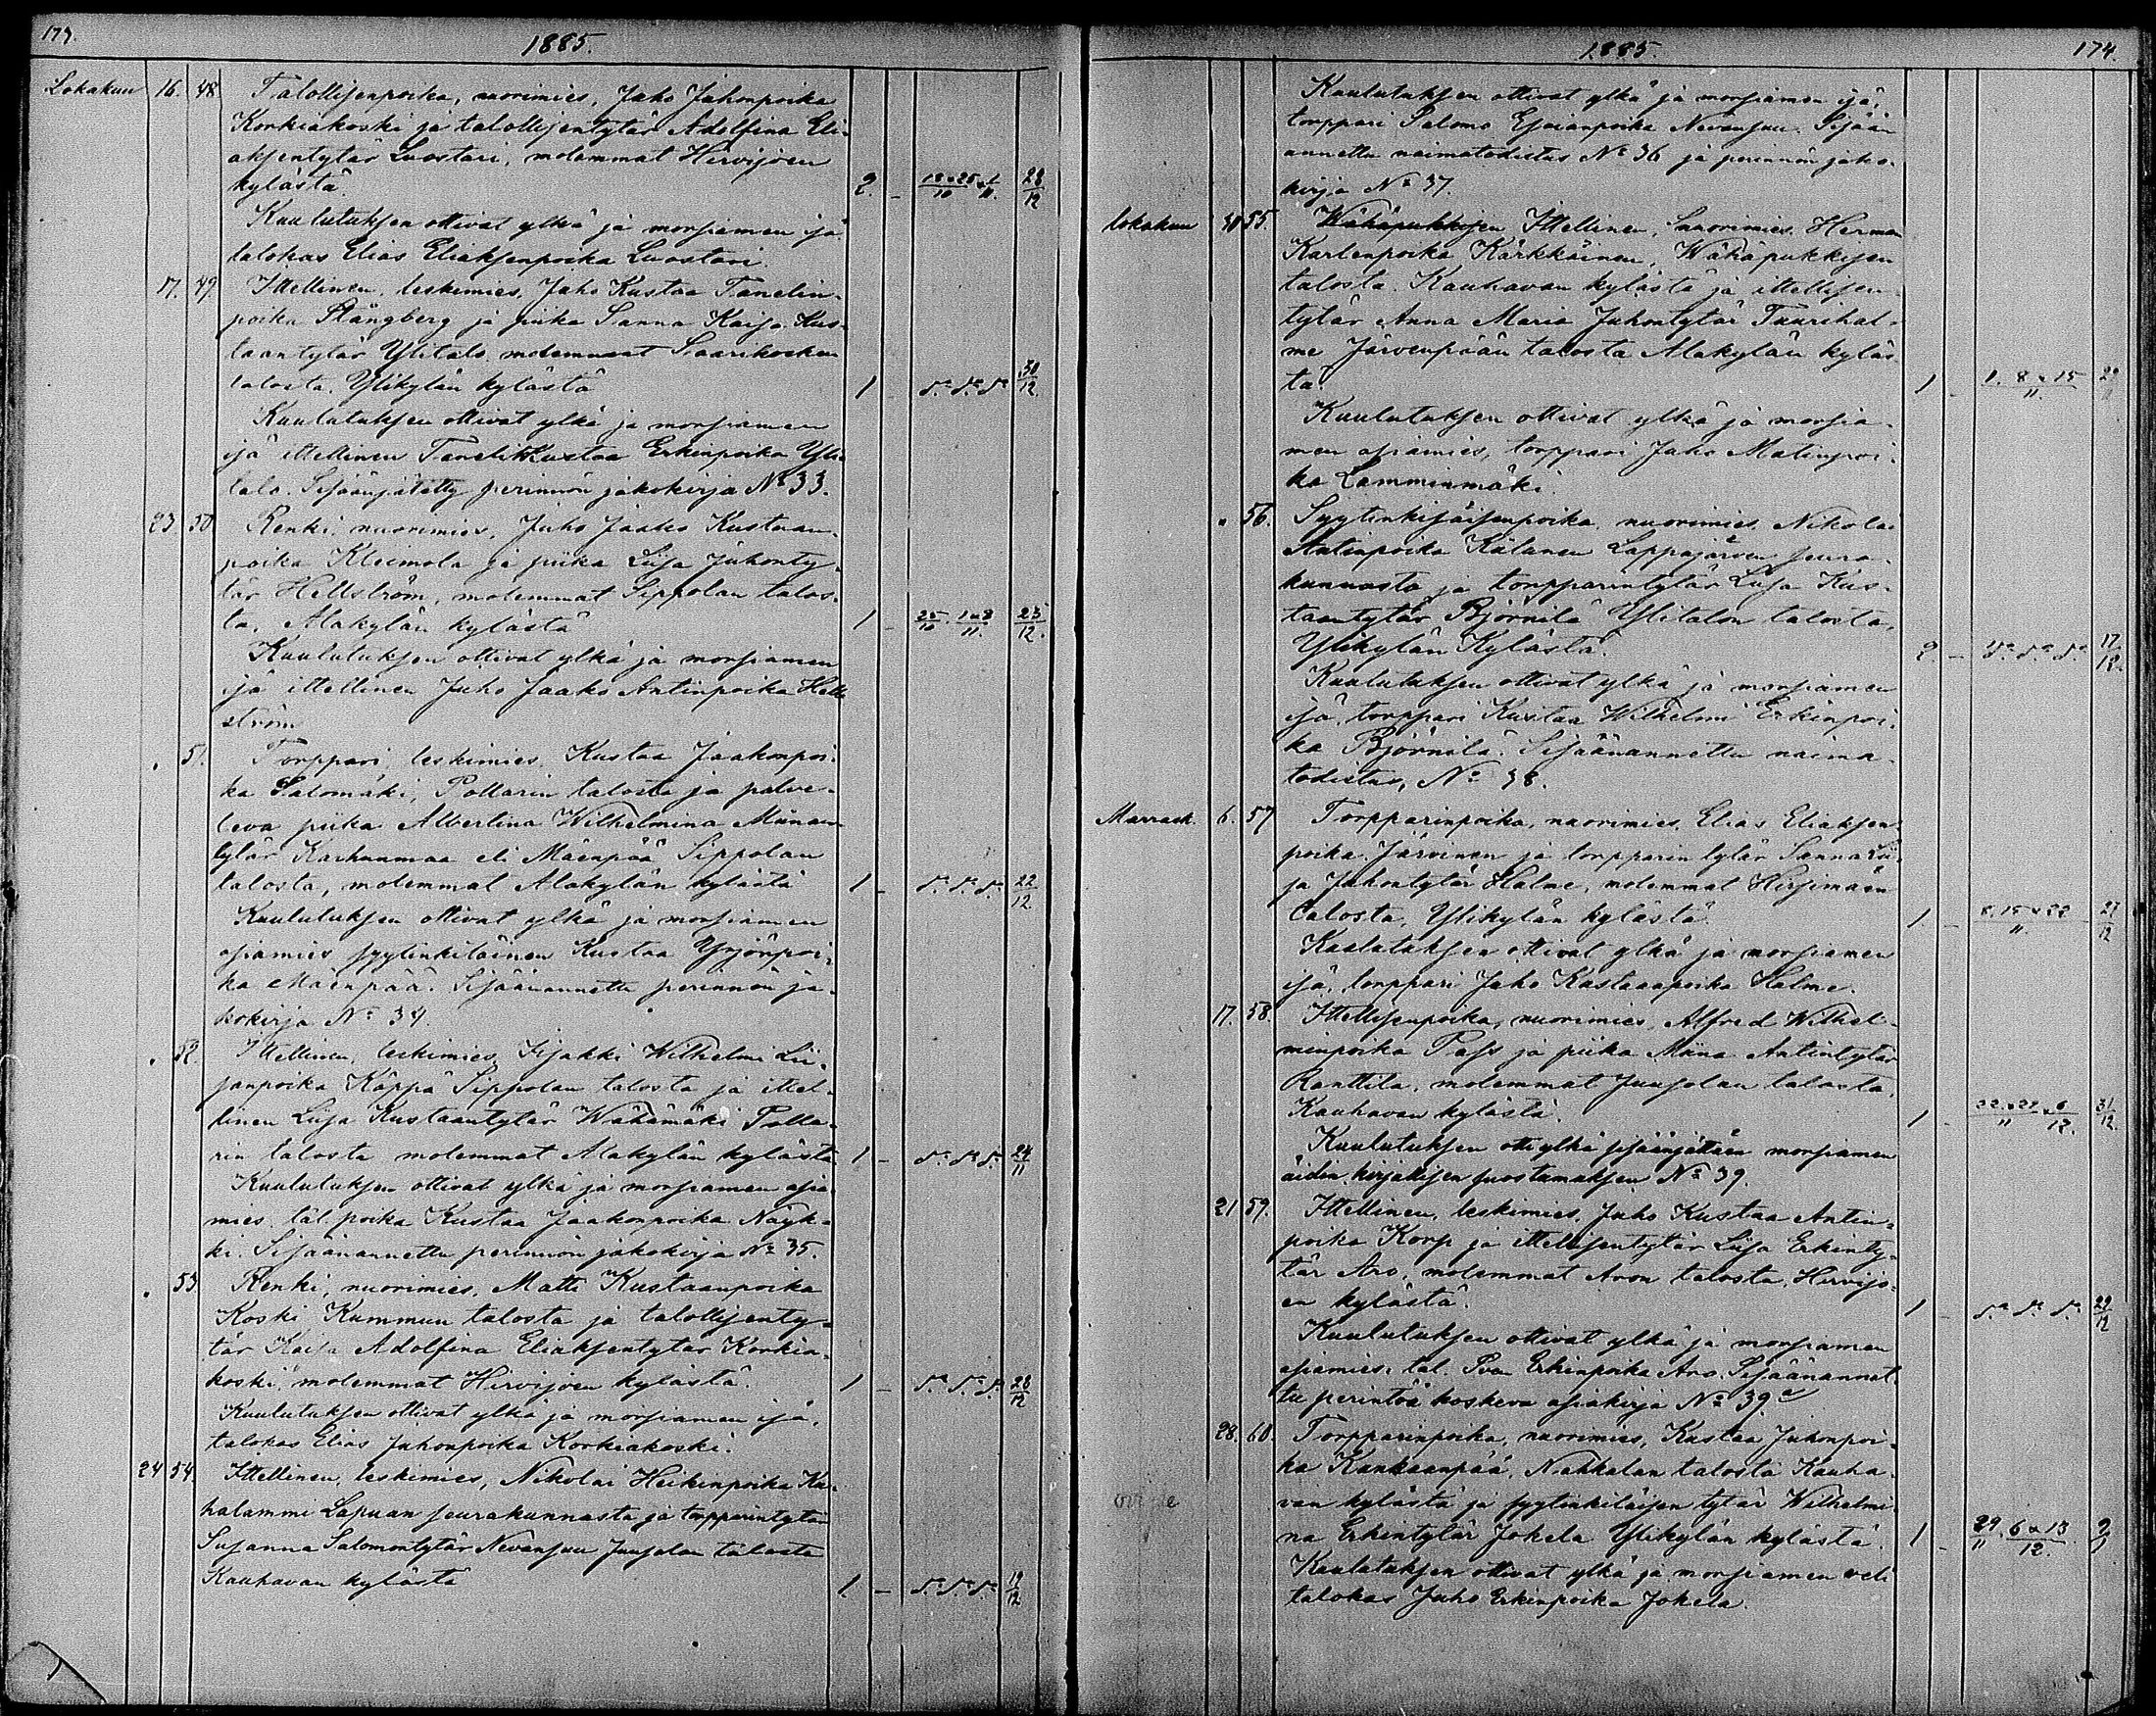 173.
1885.
Lokakuu 16. 48 Talollisenpoika, nuorimies, Juho Juhonpoika
Korkiakoski ja talollisentytär Adolfina Eli-
aksentytär Luostari, molemmat Hirvijoen
kylästä. 2. – 18 & 25/10 & 1/11. 28/12
Kuulutuksen ottivat ylkä ja morsiamen isä
talokas Elias Eliaksenpoika Luostari.
17. 49. Ittellinen, leskimies, Juho Kustaa Tanelin-
poika Stångberg ja piika Sanna Kaisa Kus-
taantytär Ylitalo molemmat Saarikosken
talosta, Ylikylän kylästä 1 – d:o d:o d:o 30/12.
Kuulutuksen ottivat ylkä ja morsiamen
isä ittellinen Taneli Kustaa Erkinpoika Yli-
talo. Sisäänjätetty perinnön jakokirja No 33.
23. 50 Renki, nuorimies, Juho Jaako Kustaan-
poika Kleimola ja piika Liisa Juhonty-
tär Hellström, molemmat Sippolan talos-
ta, Alakylän kylästä 1 – 25/10. 1 & 8/11. 25/12.
Kuulutuksen ottivat ylkä ja morsiamen
isä ittellinen Juho Jaako Antinpoika Hell
ström
" 51. Torppari, leskimies, Kustaa Jaakonpoi-
ka Salomäki, Pollarin talosta ja palve-
leva piika Albertina Wilhelmina Miinan-
tytär Karhunmaa eli Mäenpää Sippolan
talosta, molemmat Alakylän kylästä 1 – d:o d:o d:o 22/12.
Kuulutuksen ottivat ylkä ja morsiamen
asiamies syytinkiläinen Kustaa Yrjönpoi-
ka Mäenpää. Sisäänannettu perinnön ja-
kokirja No 34.
" 52. Ittellinen, leskimies, Iisakki Wilhelmi Lii-
sanpoika Käppä Sippolan talosta ja ittel-
linen Liisa Kustaantytär Wähämäki Polla-
rin talosta molemmat Alakylän kylästä 1 – d:o d:o d:o 24/11
Kuulutuksen ottivat ylkä ja morsiamen asia-
mies tal. poika Kustaa Jaakonpoika Näyk-
ki. Sisäänannettu perinnön jakokirja No 35.
" 53. Renki, nuorimies, Matti Kustaanpoika
Koski Kummun talosta ja talollisenty-
tär Kaisa Adolfina Eliaksentytär Korkia-
koski, molemmat Hirvijoen kylästä. 1 – d:o d:o d:o 28/12
Kuulutuksen ottivat ylkä ja morsiamen isä,
talokas Elias Juhonpoika Korkiakoski.
24 54 Ittellinen, leskimies, Nikolai Heikinpoika Ka-
halammi Lapuan seurakunnasta ja torpparintytär
Susanna Salomontytär Nevansuu Juusolan talosta
Kauhavan kylästä 1 – d:o d:o d:o 19/12
1885.
174.
Kuulutuksen ottivat ylkä ja morsiamen isä,
torppari Salomo Esaianpoika Nevansuu. Sisään
annettu naimatodistus No 36 ja perinnön jako-
kirja No 37.
Lokakuu 30 55. Wähäpukkisen Ittellinen, nuorimies, Herman
Karlenpoika Kärkkäinen, Wähäpukkisen
talosta, Kauhavan kylästä ja ittellisen-
tytär Anna Maria Juhontytär Tuurihal-
me Järvenpään talosta Alakylän kyläs-
tä. 1 – 1. 8 & 15/11. 29
Kuulutuksen ottivat ylkä ja morsia-
men asiamies, torppari Juho Matinpoi-
ka Lamminmäki.
" 56. Syytinkisäisenpoika, nuorimies, Nikolai
Antinpoika Kälanen Lappajärven seura-
kunnasta ja torpparintytär Liisa Kus-
taantytär Björnilä Ylitalon talosta,
Ylikylän Kylästä. 2. – d:o d:o d:o 17/12.
Kuulutuksen ottivat ylkä ja morsiamen
isä, torppari Kustaa Wilhelmi Erkinpoi-
ka Björnilä. Sisäänannettu naima-
todistus, No 38.
Marrask. 6. 57 Torpparinpoika, nuorimies, Elias Eliaksen-
poika Järvinen ja torpparintytär Sanna Lii-
sa Juhontytär Halme, molemmat Hirsimäen
talosta, Ylikylän kylästä. 1. – 8. 15 & 22/11. 27/12
Kuulutuksen ottivat ylkä ja morsiamen
isä, torppari Juho Kustaanpoika Halme.
17. 58. Ittellisenpoika, nuorimies, Alfred Wilhel-
minpoika Pass ja piika Miina Antintytär
Renttilä, molemmat Juusolan talosta,
Kauhavan kylästä. 1 – 22 & 29/11 & 6/12. 31/12.
Kuulutuksen otti ylkä sisäänjättäen morsiamen
äidin kirjallisen suostumuksen No 39.
21 59. Ittellinen, leskimies, Juho Kustaa Antin-
poika Korp ja ittellisentytär Liisa Erkinty-
tär Aro, molemmat Aron talosta, Hirvijo-
en kylästä. 1 – d:o d:o d:o 29/12
Kuulutuksen ottivat ylkä ja morsiamen
asiamies tal. Iva Erkinpoika Aro. Sisäänannet-
tu perintöä koskeva asiakirja No 39.a
28. 60. Torpparinpoika, nuorimies, Kustaa Juhonpoi-
ka Kankaanpää, Nahkalan talosta Kauha-
van kylästä ja syytinkiläisen tytär Wilhelmi-
na Erkintytär Jokela Ylikylän kylästä. 1 – 29/11. 6 & 13/12.
Kuulutuksen ottivat ylkä ja morsiamen veli
talokas Juho Erkinpoika Jokela.